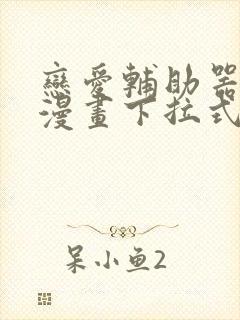 戀愛輔助器
漫畫下拉式
呆小鱼2